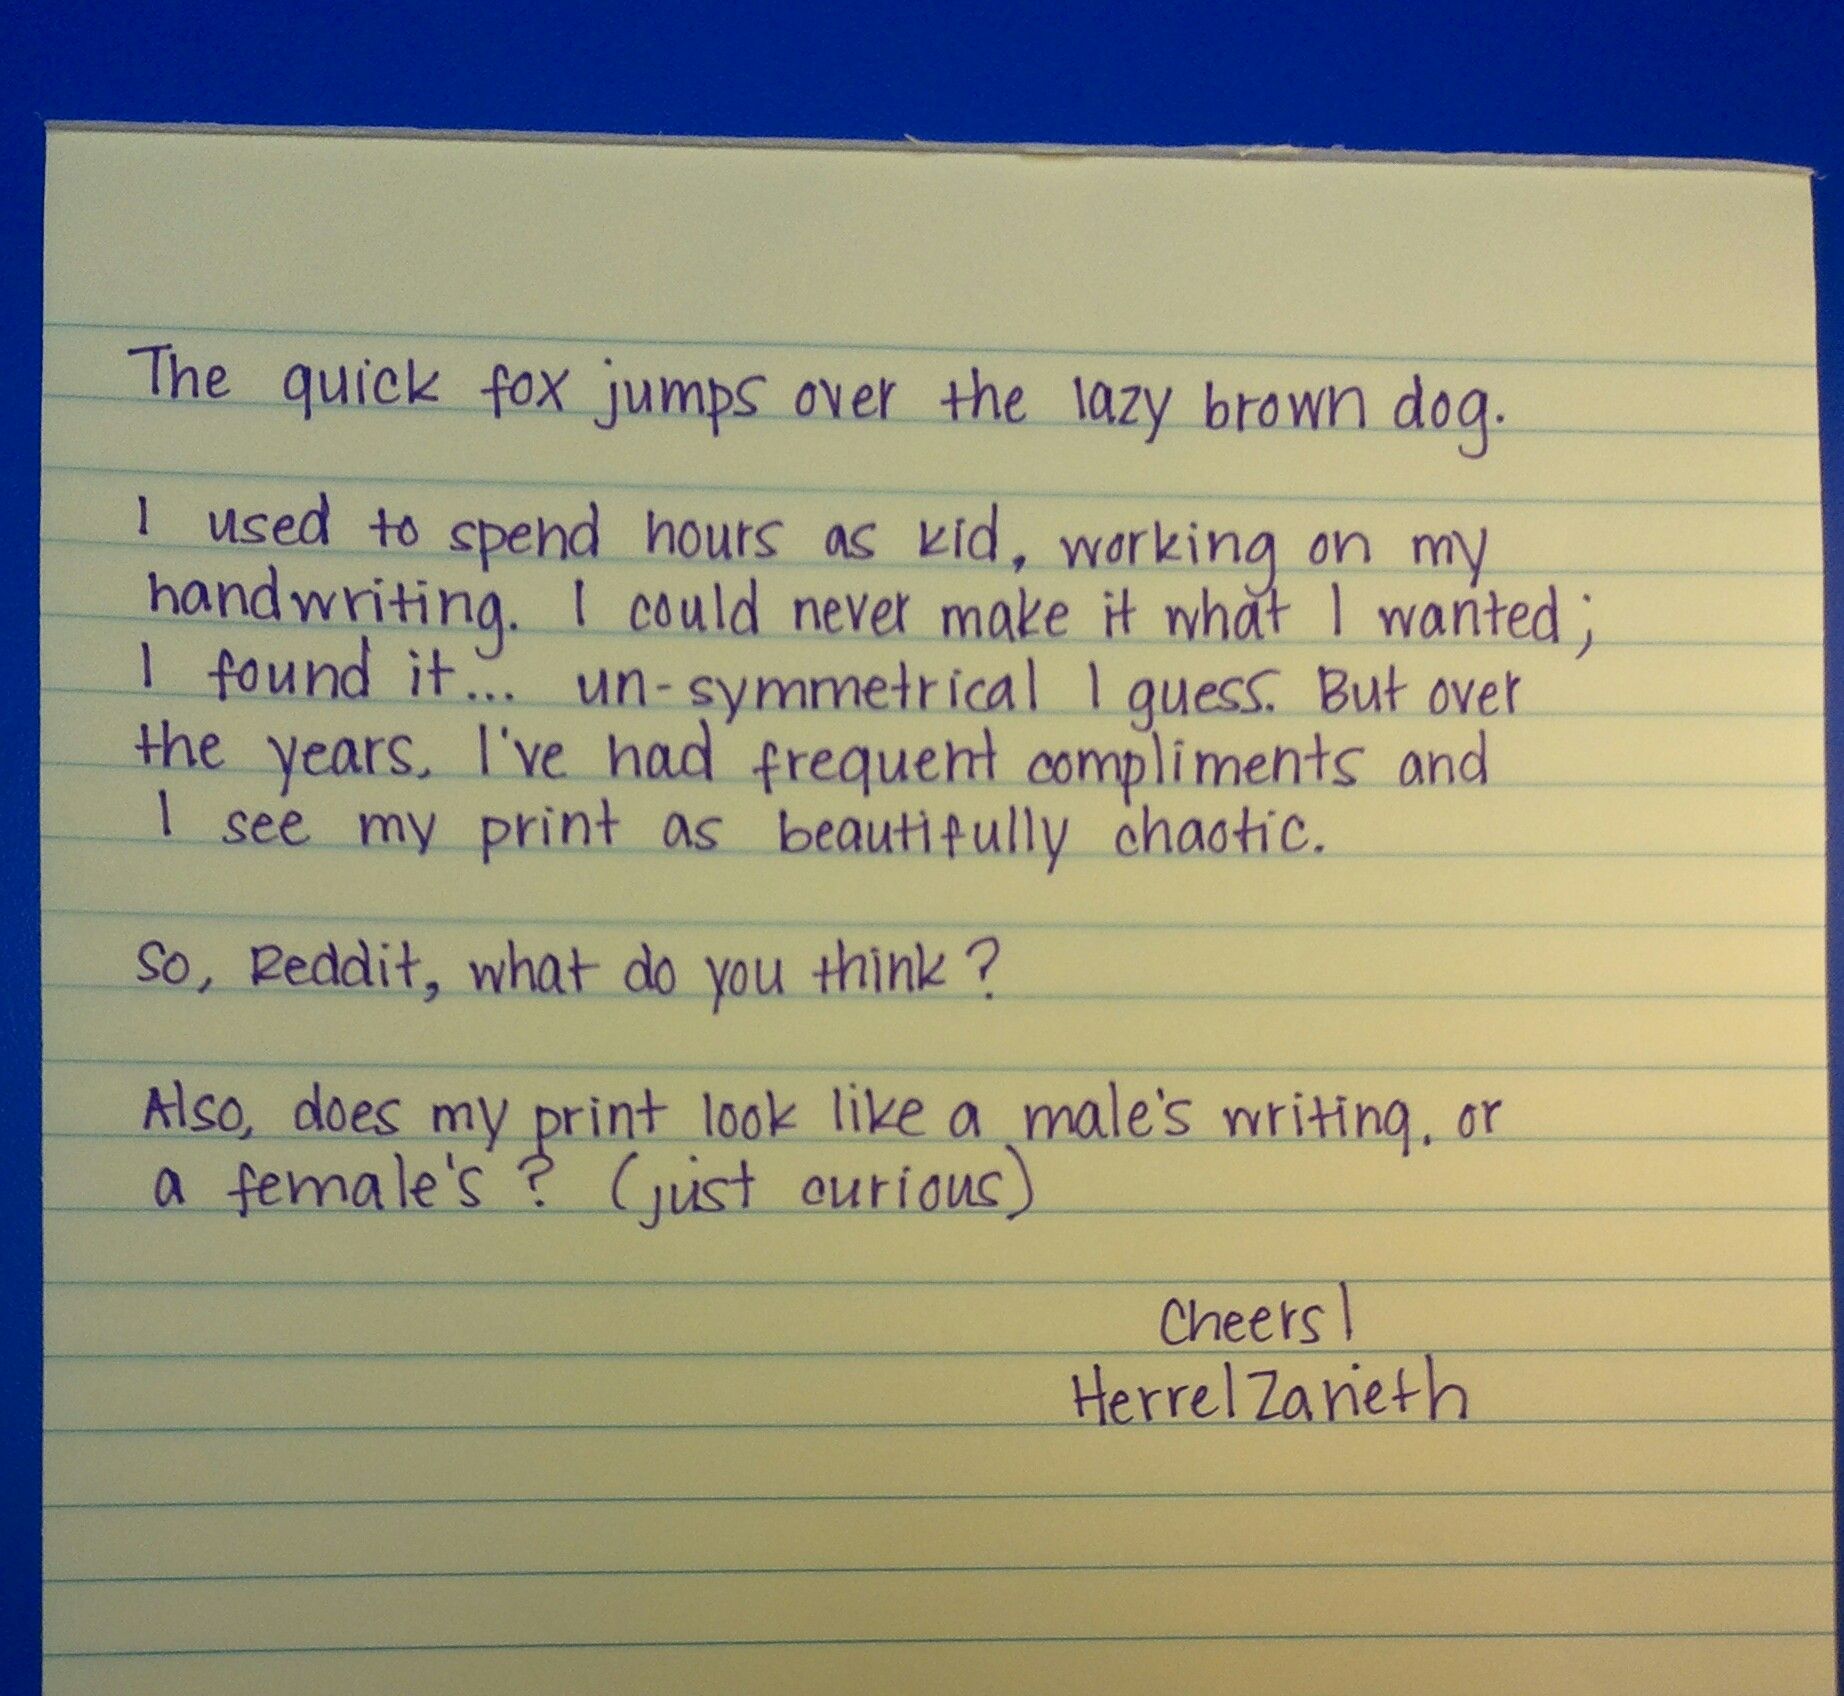 The quick fox jumps over the lazy brown dog.
I used to spend hours as kid, working on my
handwriting. I could never make it what I wanted;
I found it... un-symmetrical I guess. But over
the years, I've had frequent compliments and
I see my print as beautifully chaotic.
So, Reddit, what do you think?
Also, does my print look like a male's writing, or
a female's? (just curious)
Cheers!
HerrelZarieth